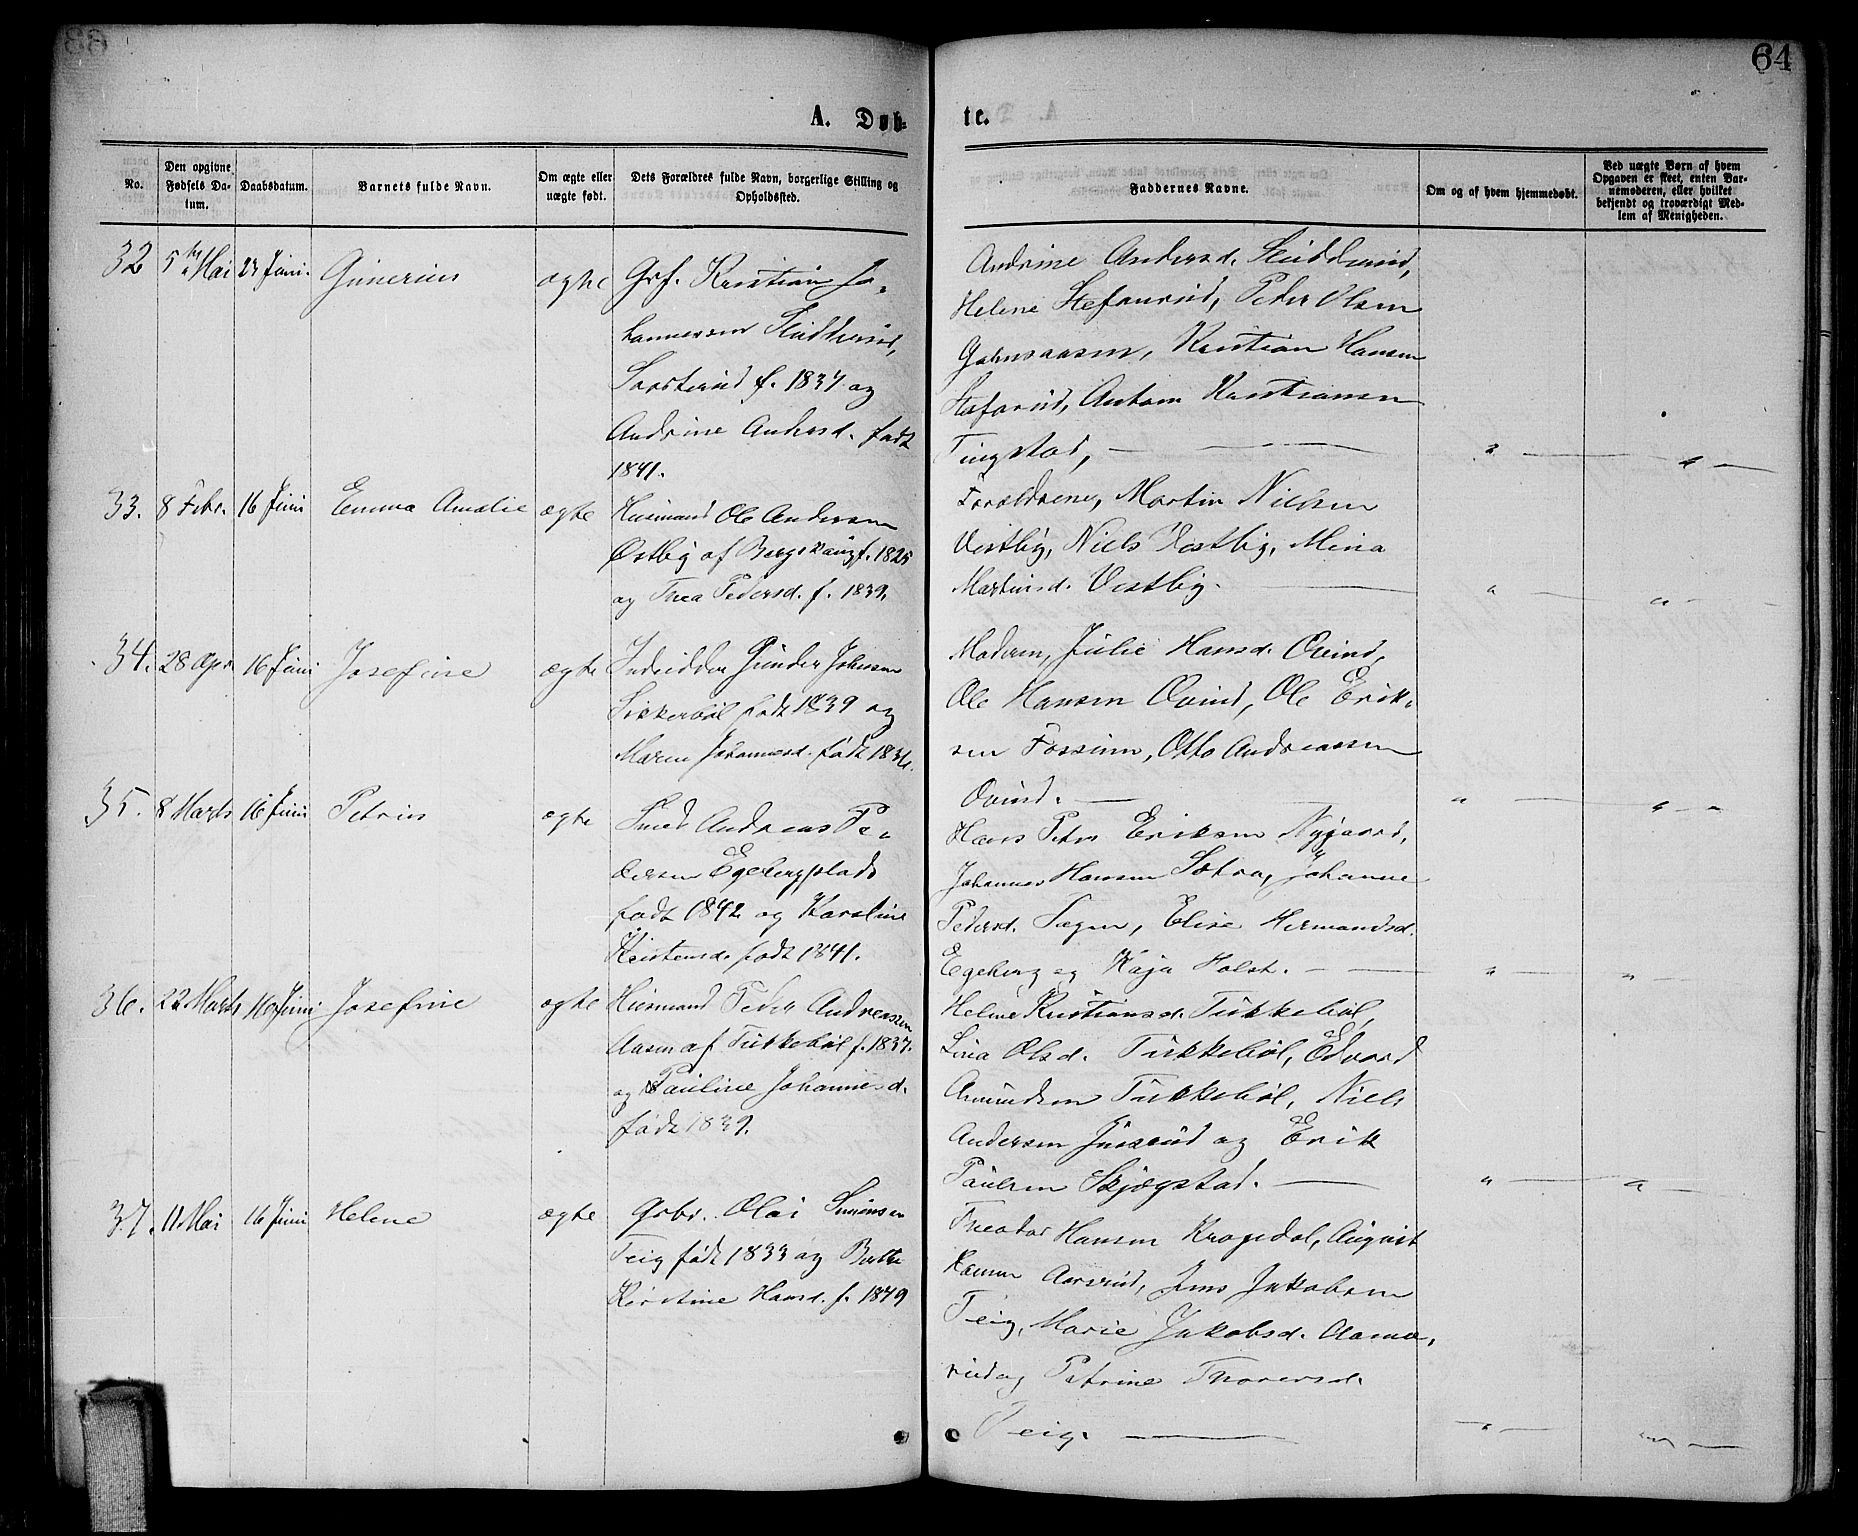 64
A. Døb-
te.
No.
Den opgivne Fødsels Datum.
Daabsdatum.
Barnets fulde Navn.
Om ægte eller uægte født.
Dets Forældres fulde Navn, borgerlige Stilling og Opholdssted.
Faddernes Navne.
Om og af hvem hjemmedøbt.
Ved uægte Børn af hvem Opgaven er skeet, enten Barnemoderen, eller hvilket bekjendt og troværdigt Medlem af Menigheden.
32 5 Mai 23 Juni. Gunerius ægte Gbr. Kristian Jo-
hannesen
f. 1837 og
Andrine Andersd. født
1841.
Andrine Andersd.
Helene Stefansrud, Peder Olsen
Kristian Hansen
Anton Kristiansen
Tingstad, —
33. 8 Febr. 16 Juni Emma Amalie ægte Husmand Ole Andersen
Østby af f. 1825
og Thea Pedersd. f. 1839.
Forældrene, Martin Nielsen
Vestby, Niels Vestby, Mina
Martinsd. Vestby. —
34. 28 Apr. 16 Juni Josefine ægte Inderidder Gunder Johnsen
født 1839 og
Maren Johannesd. født
Moderen, Julie Hansd. Ovind,
Ole Hansen Ovind, Ole Erik-
sen Fossum, Otto Andreassen
Ovind. —
35. 8 Marts 16 Juni Petrus ægte Smed Andreas Pe-
dersen Egebergplads
født 1842 og Karoline
Kristensd. født 1841.
Hans Peter Eriksen Nygaard,
Johannes Hansen Sætra, Johanne
Pedersd. Elise Hermandsd.
Egeberg og Kaja Holst. —
36. 22 Marts 16 Juni Josefine ægte Husmand Peder Andreassen
Aasen af Tukkebøl f. 1837.
og Pauline Johannesd.
født 1839.
Helene Kristiansd. Tukkebøl,
Lina Olsd. Tukkebøl, Edvard
Amundsen Tukkebøl, Niels
Andersen Jusserud og Erik
Paulsen Skjøgstad. —
37. 11 Mai 16 Juni Helene ægte Gbr. Olai Simensen
Teig født 1833 og Berthe
Kirstine Hansd. f. 1849
Theodor Hansen Krogsdal, August
Hansen Aarsrud, Jens Jakobsen
Teig, Marie Jakobsd. Aama-
rud og Petrine Thorersd.
Teig. —